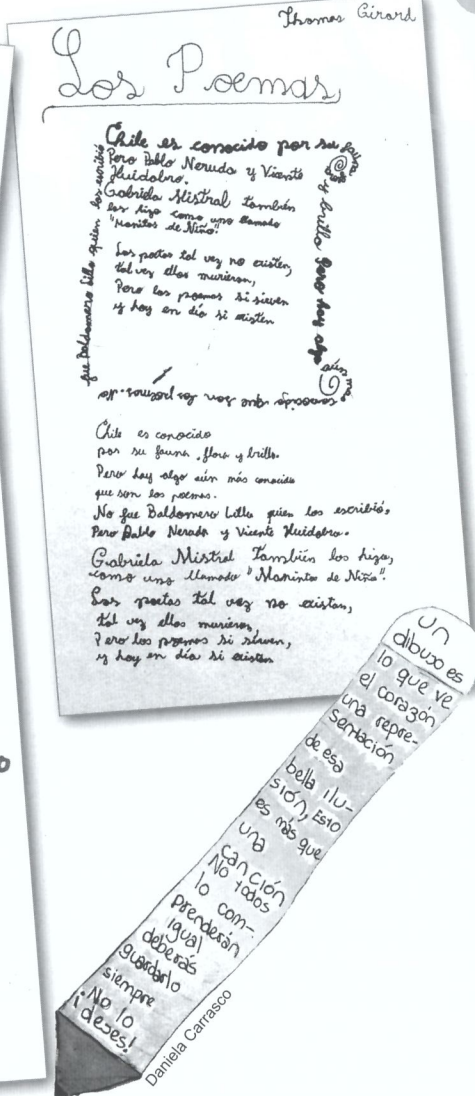 Thomas Girard
Los Poemas
Chile es conocido por su fauna
y brillo Pero hay algo
aún mas
conocido que son los poemas. No
fue Baldomero Lillo quien los escribió
Pero Pablo Neruda y Vicente
Huidobro.
Gabriela Mistral también
los hizo como uno llamado
"Manitos de Niño".
Los poetas tal vez no existen,
tal vez ellos murieron,
Pero los poemas si sirven
y hoy en día si existen
Chile es conocido
por su fauna, flora y brillo.
Pero hay algo aún más conocido
que son los poemas.
No fue Baldomero Lillo quien los escribió,
Pero Pablo Neruda y Vicente Huidobro.
Gabriela Mistral También los hizo,
como uno llamado "Manintos de Niño".
Los poetas tal vez no existan,
tal vez ellos murieron,
Pero los poemas si sirven,
y hoy en día si existen
un
dibujo es
lo que ve
el corazón
una repre-
sentación
de esa
bella ilu-
sión, Esto
es más que
una
canción
No todos
lo com-
prenderán
igual
deberás
guardarlo
siempre
¡No lo
dejes!
Daniela Carrasco